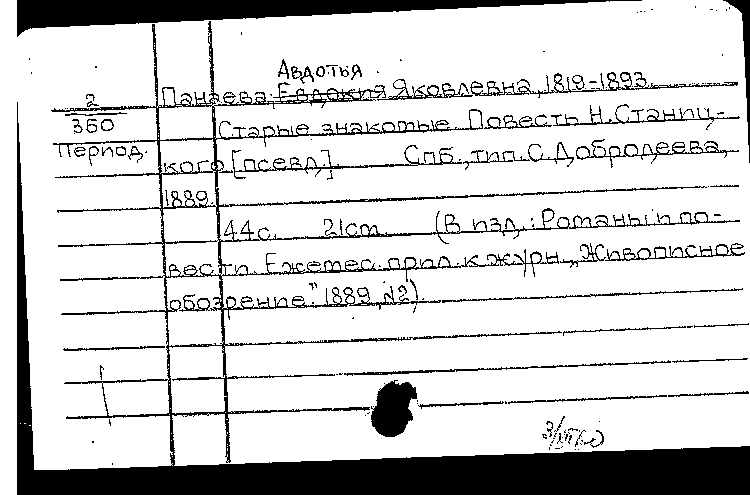 Авдотья
2 Панаева, Евдокия Яковлевна, 1819-1893.
360 Старые знакомые. Повесть Н. Станиц-
Период. кого [псевд.]. Спб., тип. С. Добродеева,
1889.
44 с. 21 cm. (В изд.: Романы и по-
вести. Ежемес. прил. к журн. „Живописное
обозрение" 1889, №2).